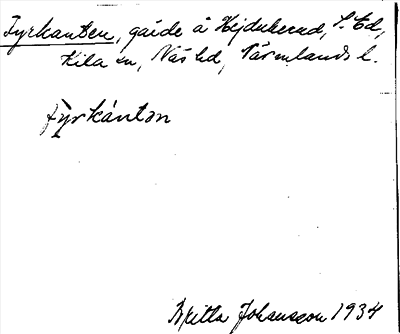 Fyrkanten, gärde å Hejdukerud, S. Ed,
Kila sn, Näs hd, Värmlands l.
fy̆rkántən
Britta Johansson 1934